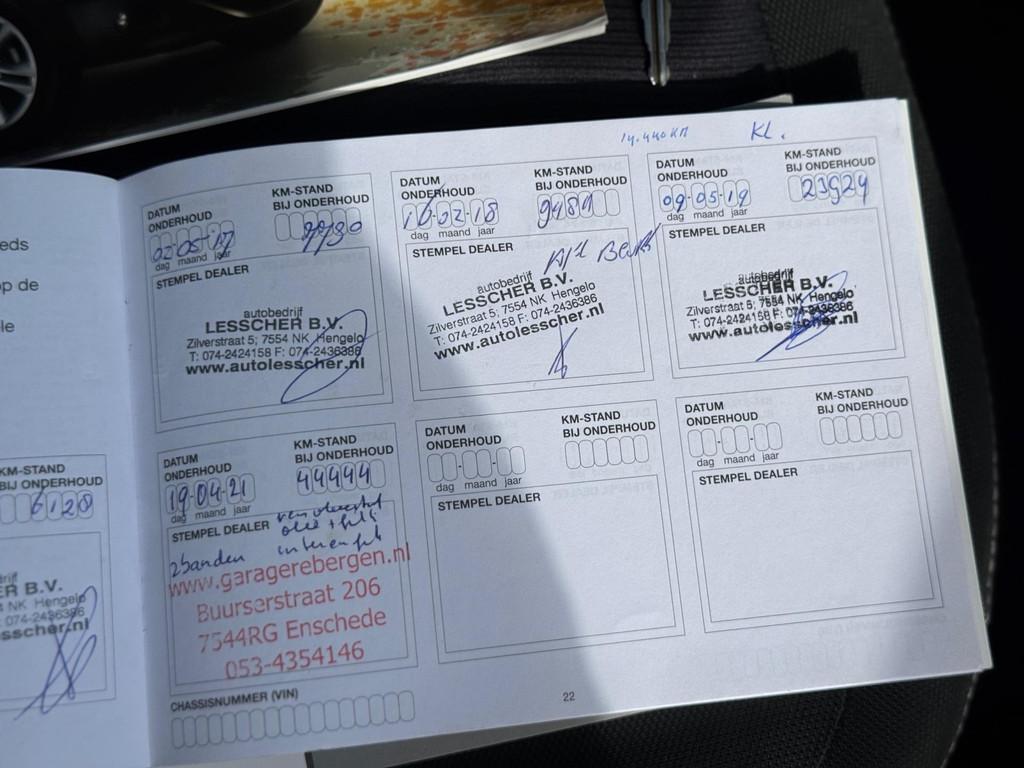 eds
op de
ele
KM-STAND
BIJ ONDERHOUD
6128
ER B.V.
4 NK Hengelo
: 074-2436386
lesscher.nl
14.440 KM
KL.
DATUM
ONDERHOUD
KM-STAND
BIJ ONDERHOUD
02-05-17
dag maand jaar
STEMPEL DEALER
autobedrijf
LESSCHER B.V.
Zilverstraat 5; 7554 NK Hengelo
T: 074-2424158 F: 074-2436386
www.autolesscher.nl
DATUM
ONDERHOUD
KM-STAND
BIJ ONDERHOUD
16-02-18
9481
dag maand jaar
STEMPEL DEALER
autobedrijf
LESSCHER B.V.
Zilverstraat 5; 7554 NK Hengelo
T: 074-2424158 F: 074-2436386
www.autolesscher.nl
DATUM
ONDERHOUD
KM-STAND
BIJ ONDERHOUD
09-05-19
23924
dag maand jaar
STEMPEL DEALER
autobedrijf
LESSCHER B.V.
Zilverstraat 5; 7554 NK Hengelo
T: 074-2424158 F: 074-2436386
www.autolesscher.nl
DATUM
ONDERHOUD
KM-STAND
BIJ ONDERHOUD
19-04-21
44444
dag maand jaar
STEMPEL DEALER
2banden
www.garagerebergen.nl
Buurserstraat 206
7544RG Enschede
053-4354146
CHASSISNUMMER (VIN)
DATUM
ONDERHOUD
KM-STAND
BIJ ONDERHOUD
dag maand jaar
STEMPEL DEALER
DATUM
ONDERHOUD
KM-STAND
BIJ ONDERHOUD
dag maand jaar
STEMPEL DEALER
22